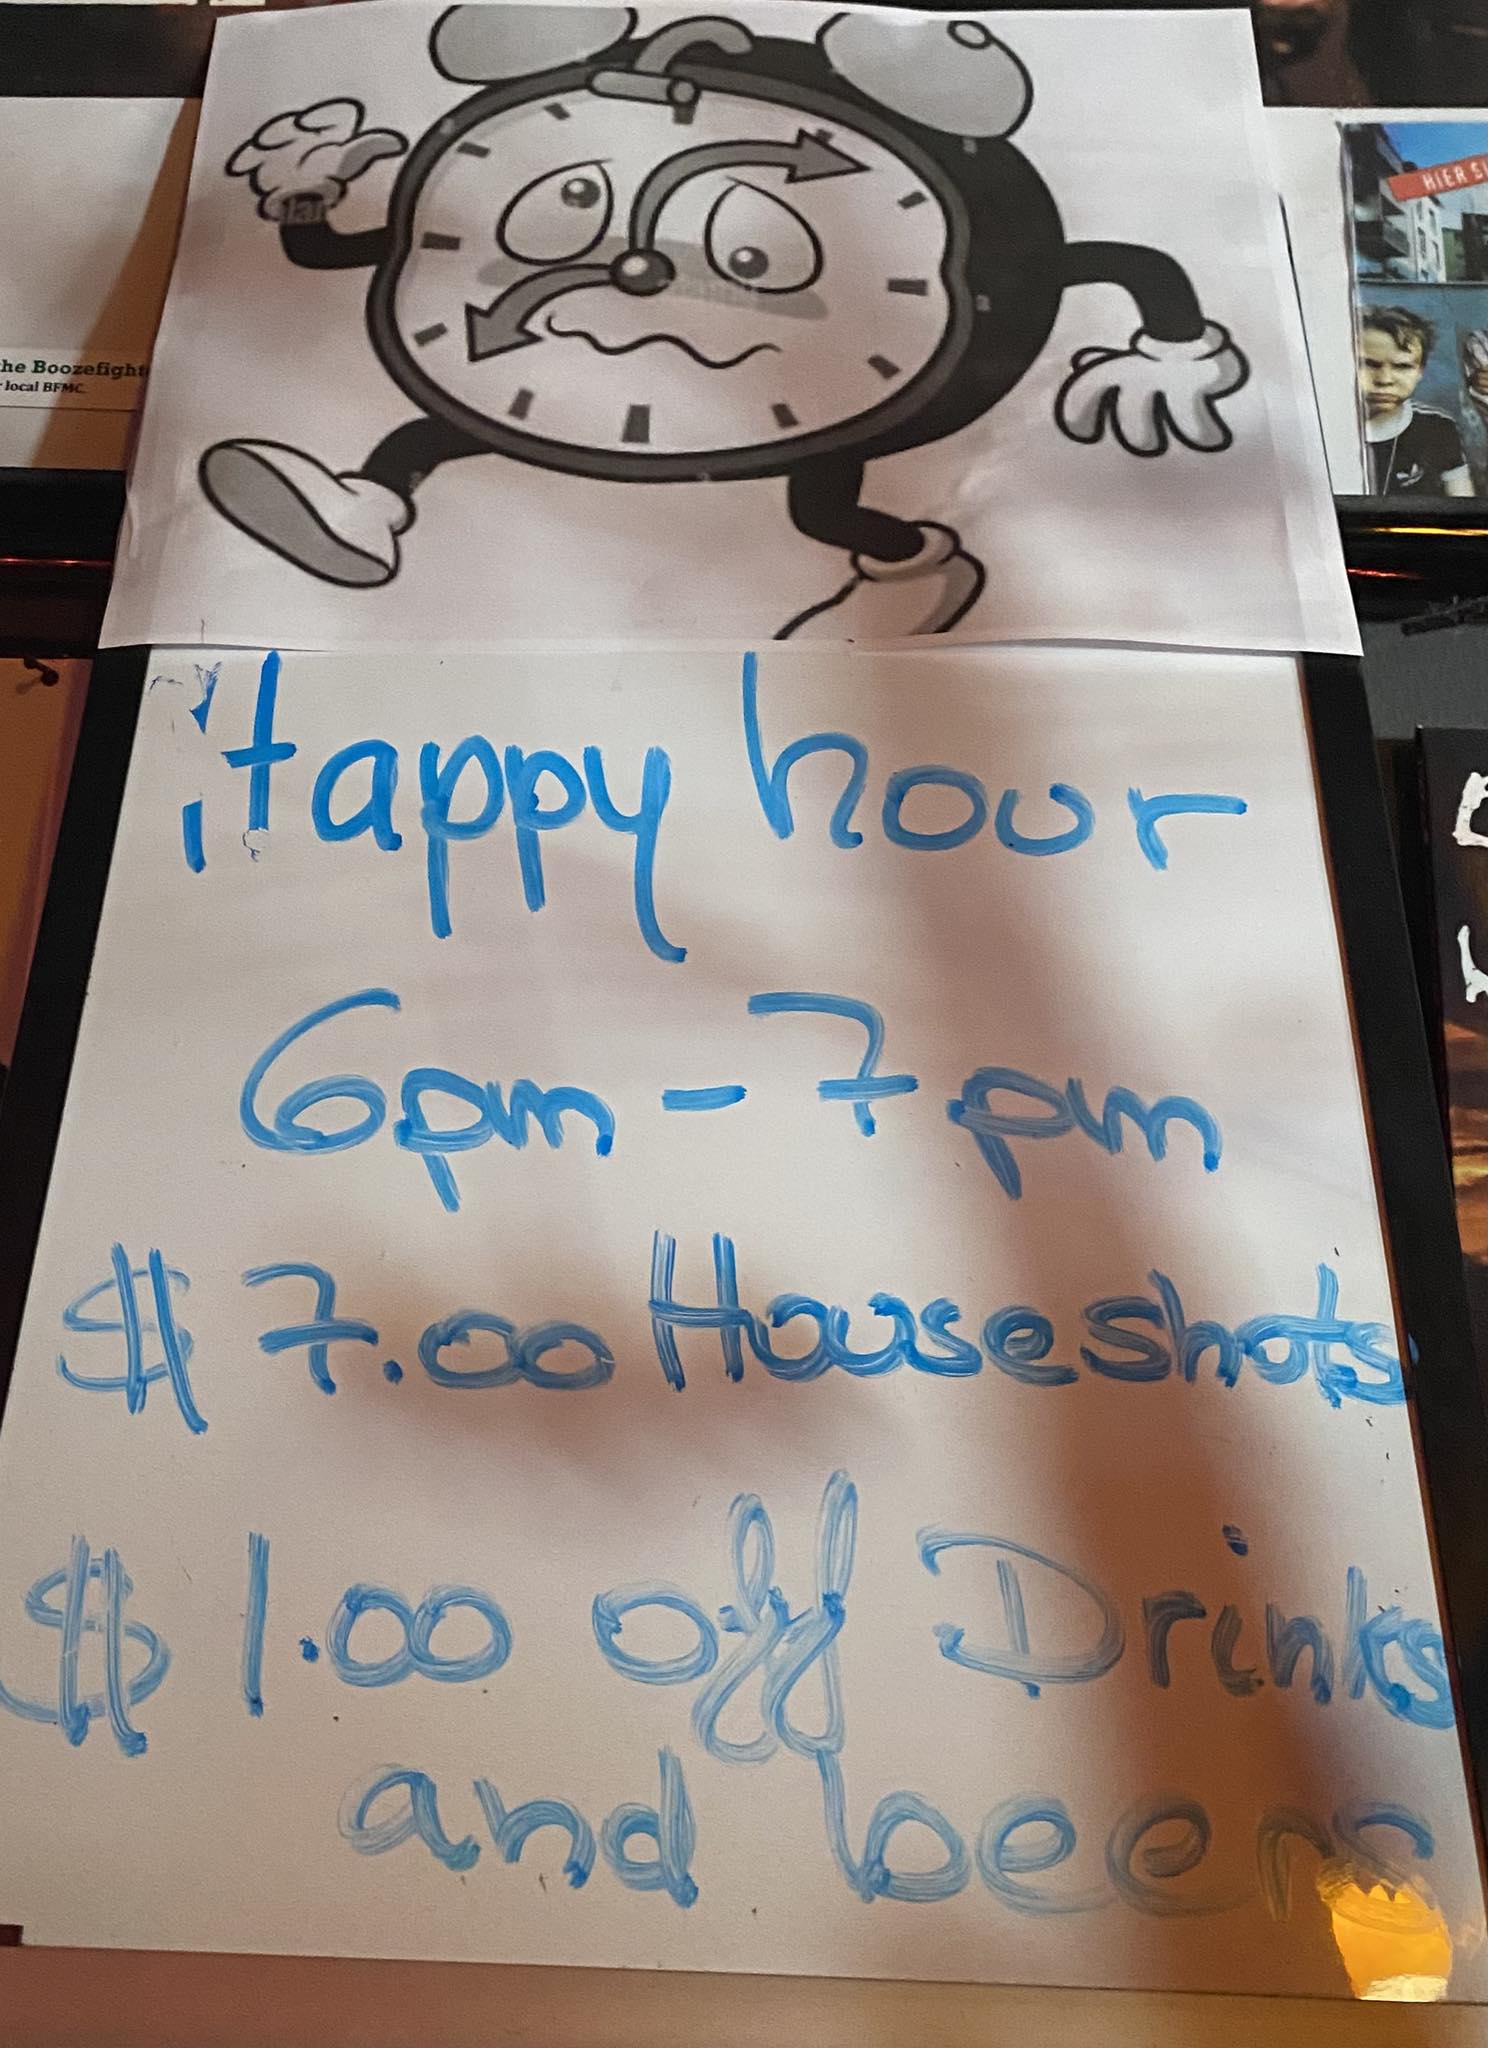 HIER
the Boozefight
local BFMC.
Happy hour
6pm - 7pm
$ 7.00 House shots
$ 1.00 off Drinks
and beers